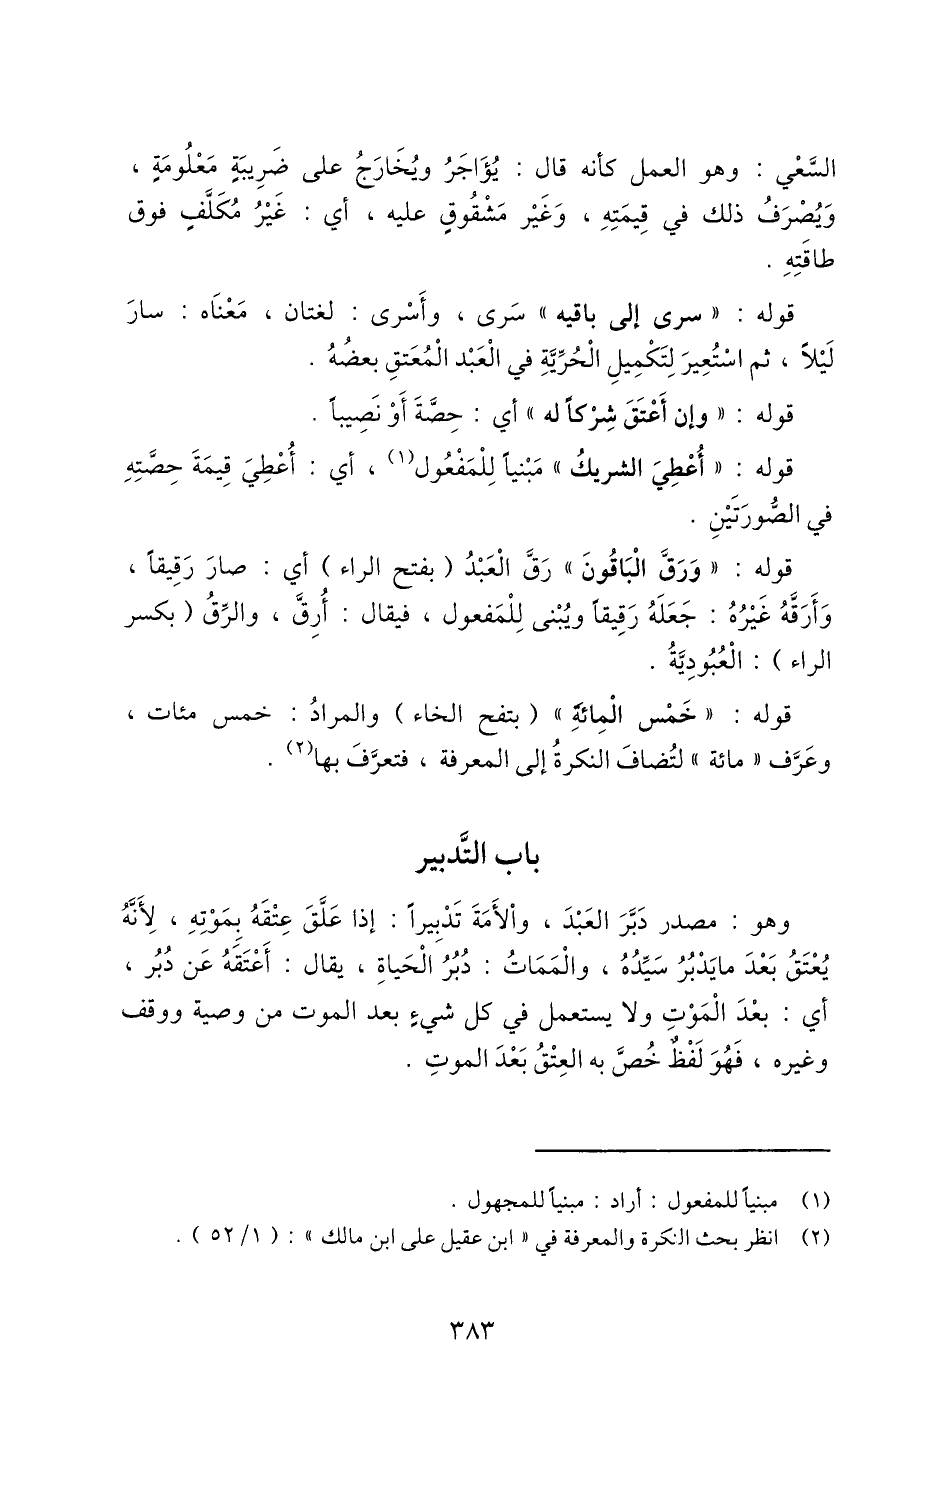 السَّعْي : وهو العمل كأنه قال : يُؤَاجَرُ ويُخَارَجُ على ضَرِيبَةٍ مَعْلُومَةٍ ،
وَيُصْرَفُ ذلك في قِيمَتِهِ ، وَغَيْر مَشْقُوقٍ عليه ، أي : غَيْرُ مُكَلَّفٍ فوق
طاقَتِهِ .
قوله : « سرى إلى باقيه » سَرى ، وأَسْرى : لغتان ، مَعْنَاه : سارَ
لَيْلاً ، ثم اسْتُعِيرَ لِتَكْمِيلِ الْحُرِّيَّةِ في الْعَبْد الْمُعَتقِ بعضُهُ .
قوله : « وإن أَعْتَقَ شِرْكاً له » أي : حِصَّةَ أَوْ نَصِيباً .
قوله : « أُعْطِيَ الشريكُ » مَبْنياً لِلْمَفْعُول(١) ، أي : أُعْطِيَ قِيمَةَ حِصَّتِهِ
في الصُّورَتَيْنِ .
قوله : « وَرَقَّ الْبَاقُونَ » رَقَّ الْعَبْدُ ( بفتح الراء ) أي : صارَ رَقِيقاً ،
وَأَرَقَّهُ غَيْرُهُ : جَعَلَهُ رَقِيقاً ويُبْنى لِلْمَفعول ، فيقال : أُرِقَّ ، والرِّقُ ( بكسر
الراء ) : الْعُبُودِيَّةُ .
قوله : « خَمْس الْمِائَةِ » ( بتفح الخاء ) والمرادُ : خمس مئات ،
وعَرَّف « مائة » لتُضافَ النكرةُ إلى المعرفة ، فتعرَّفَ بها(٢) .
باب التَّدبير
وهو : مصدر دَبَّرَ العَبْدَ ، والأمَةَ تَدْبِيراً : إذا عَلَّقَ عِتْقَهُ بِمَوْتِهِ ، لِأَنَّهُ
يُعْتَقُ بَعْدَ مايَدْبُرُ سَيِّدُهُ ، والْمَمَاتُ : دُبُرُ الْحَياةِ ، يقال : أَعْتَقَهُ عَن دُبُر ،
أي : بعْدَ الْمَوْتِ ولا يستعمل في كل شيءٍ بعد الموت من وصية ووقف
وغيره ، فَهُوَ لَفْظٌ خُصَّ به العِتْقُ بَعْدَ الموتِ .
(١) مبنياً للمفعول : أراد : مبنياً للمجهول .
(٢) انظر بحث النكرة والمعرفة في « ابن عقيل على ابن مالك » : ( ١/ ٥٢ ) .
٣٨٣